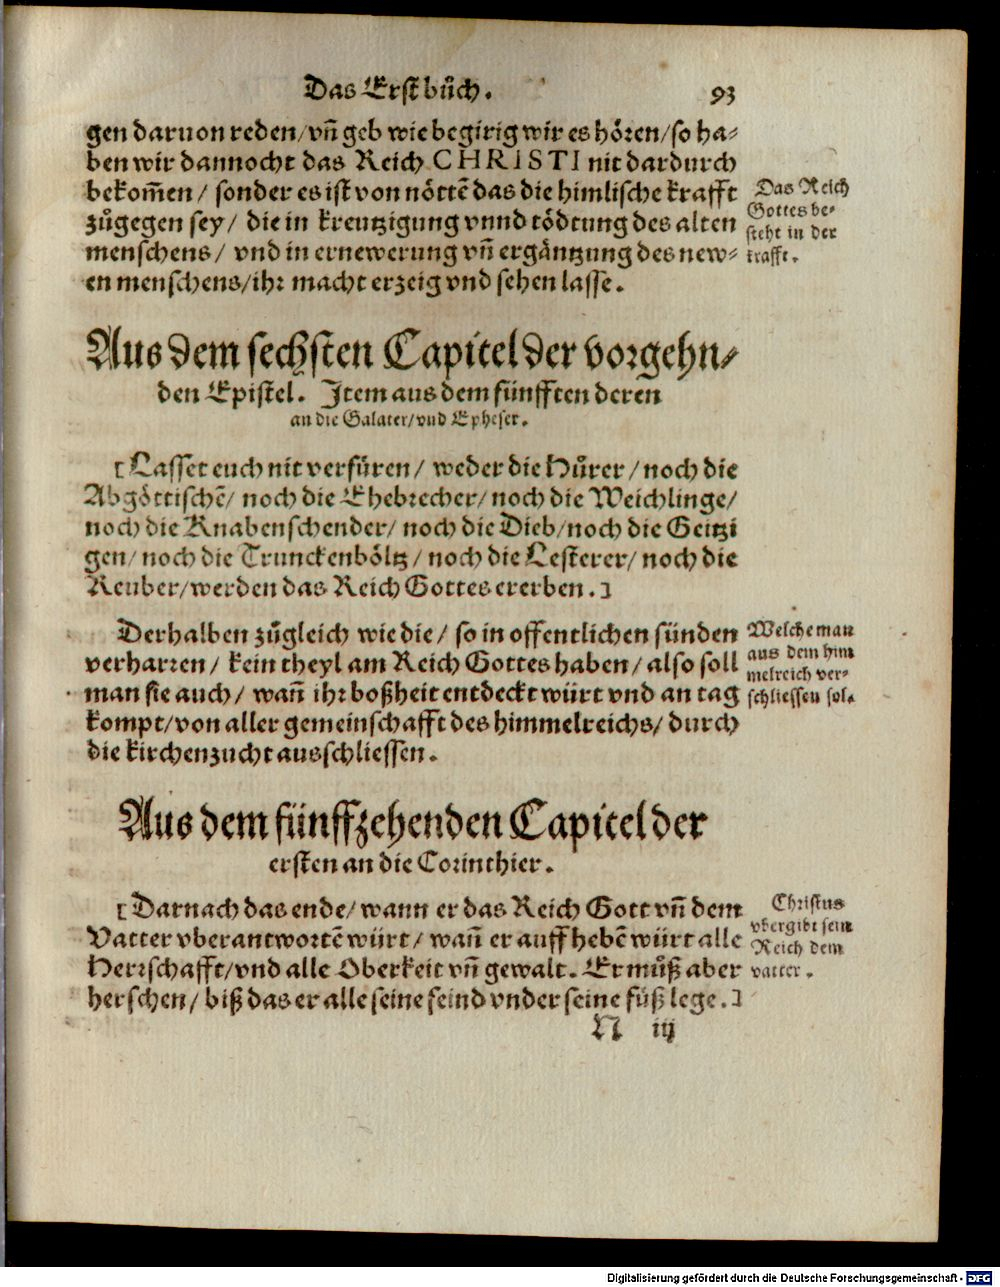 Das Erst bůch. 93
gen daruon reden/vñ geb wie begirig wir es hören/so ha⸗
ben wir dannocht das Reich CHRISTI nit dardurch
bekom̃en/ sonder es ist von nöttẽ das die himlische krafft
zůgegen sey/ die in kreutzigung vnnd tödtung des alten
menschens/ vnd in ernewerung vñ ergäntzung des new⸗
en menschens/ihr macht erzeig vnd sehen lasse.
Das Reich
Gottes be⸗
steht in der
krafft.
Aus dem sechsten Capitel der vorgehn⸗
den Epistel. Item aus dem fünfften deren
an die Galater/vnd Epheser.
[Lasset euch nit verfüren/ weder die Hůrer/ noch die
Abgöttischẽ/ noch die Ehebrecher/ noch die Weichlinge/
noch die Knabenschender/ noch die Dieb/noch die Geitzi
gen/ noch die Trunckenböltz/ noch die Lesterer/ noch die
Reuber/werden das Reich Gottes ererben.]
Derhalben zůgleich wie die/ so in offentlichen sünden
verharren/ kein theyl am Reich Gottes haben/ also soll
man sie auch/ wañ ihr boßheit entdeckt würt vnd an tag
kompt/von aller gemeinschafft des himmelreichs/ durch
die kirchenzucht ausschliessen.
Welche man
aus dem him
melreich ver⸗
schliessen sol.
Aus dem fünffzehenden Capitel der
ersten an die Corinthier.
[Darnach das ende/ wann er das Reich Gott vñ dem
Vatter vberantwortẽ würt/ wañ er auffhebẽ würt alle
Herrschafft/vnd alle Oberkeit vñ gewalt. Er můß aber
herschen/ biß das er alle seine feind vnder seine füß lege.]
Christus
vbergibt sein
Reich dem
vatter.
N iij
Digitalisierung gefördert durch die Deutsche Forschungsgemeinschaft - DFG